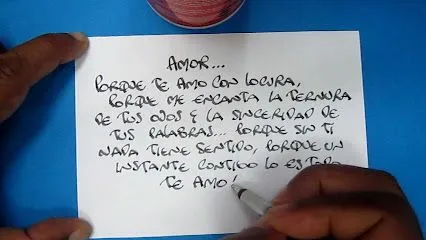 AMOR...
PORQUE TE AMO CON LOCURA,
PORQUE ME ENCANTA LA TERNURA
DE TUS OJOS Y LA SINCERIDAD DE
TUS PALABRAS... PORQUE SIN TI
NADA TIENE SENTIDO, PORQUE UN
INSTANTE CONTIGO LO ES TODO
TE AMO!